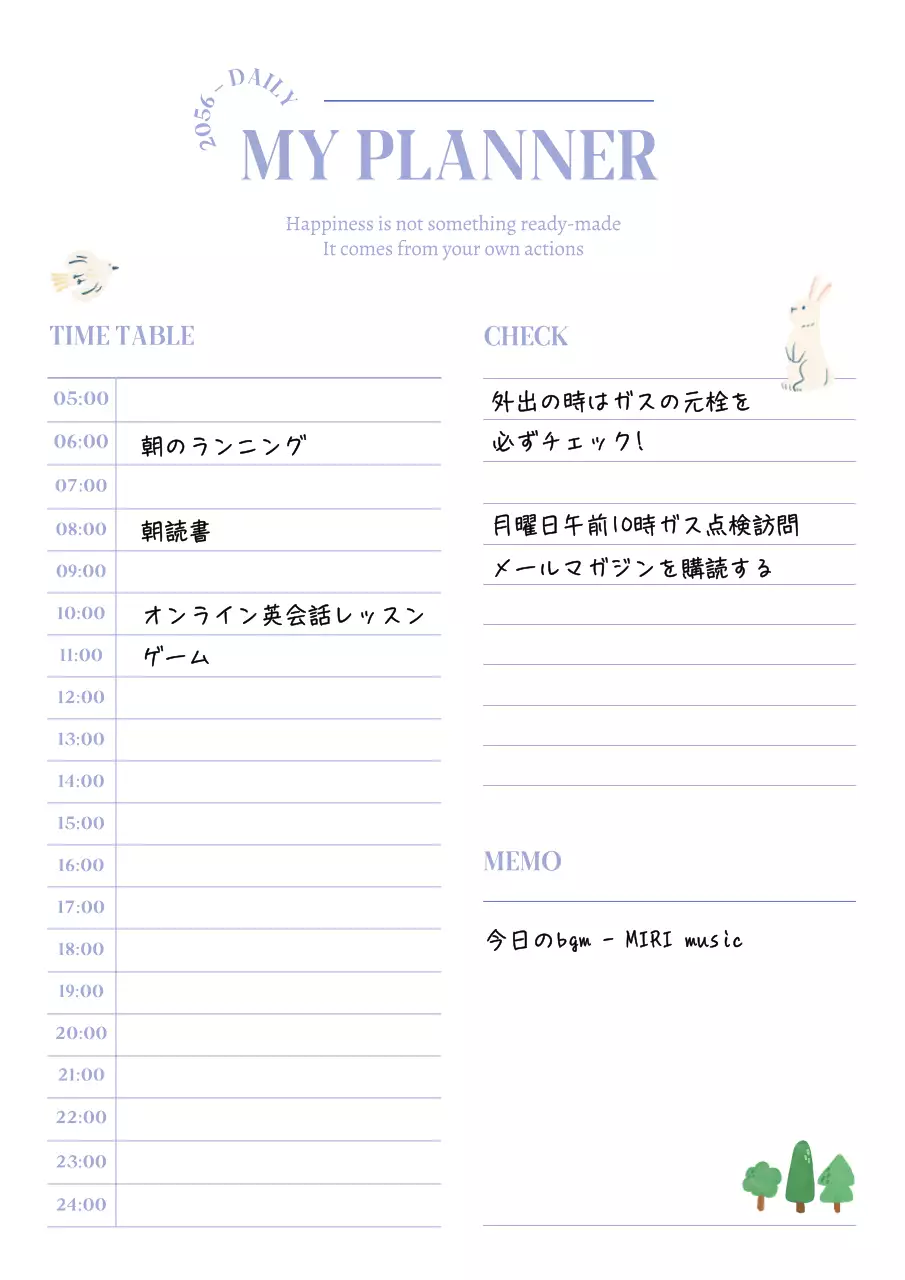 2056 - DAILY
MY PLANNER
Happiness is not something ready-made
It comes from your own actions
TIME TABLE
05:00
06:00 朝のランニング
07:00
08:00 朝読書
09:00
10:00 オンライン英会話レッスン
11:00 ゲーム
12:00
13:00
14:00
15:00
16:00
17:00
18:00
19:00
20:00
21:00
22:00
23:00
24:00
CHECK
外出の時はガスの元栓を
必ずチェック!
月曜日午前10時ガス点検訪問
メールマガジンを購読する
MEMO
今日のbgm - MIRI music